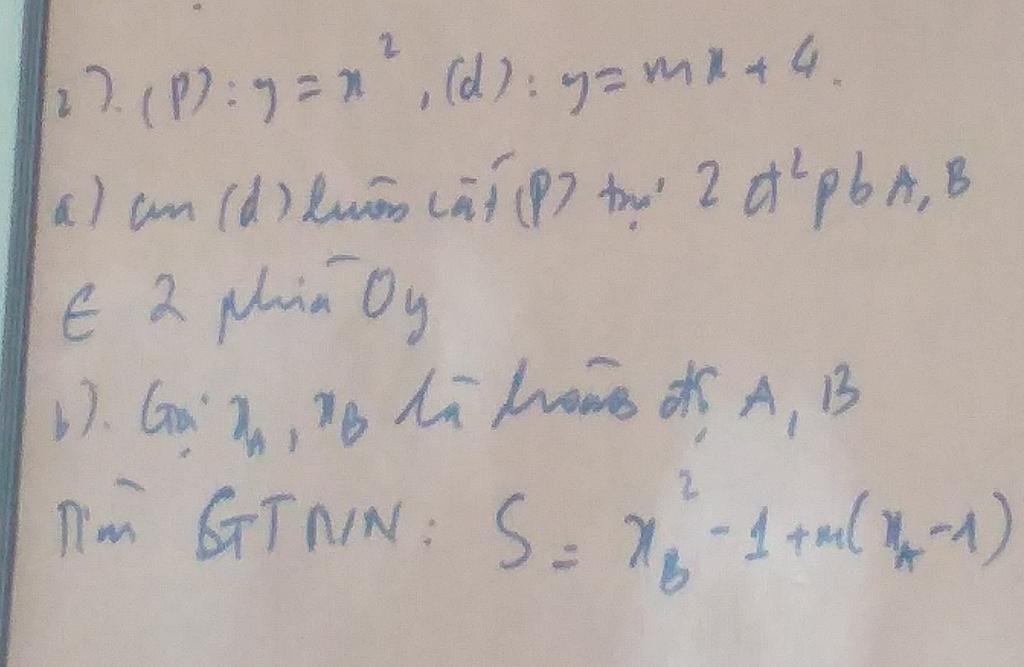 2). (P): y = x², (d): y = mx + 4.
a) cm (d) luôn cắt (P) tại 2 đ² pb A, B
∈ 2 phía Oy
b). Gọi x_A, x_B là hoành độ A, B
Tìm GTNN: S = x_B² - 1 + m(x_A - 1)